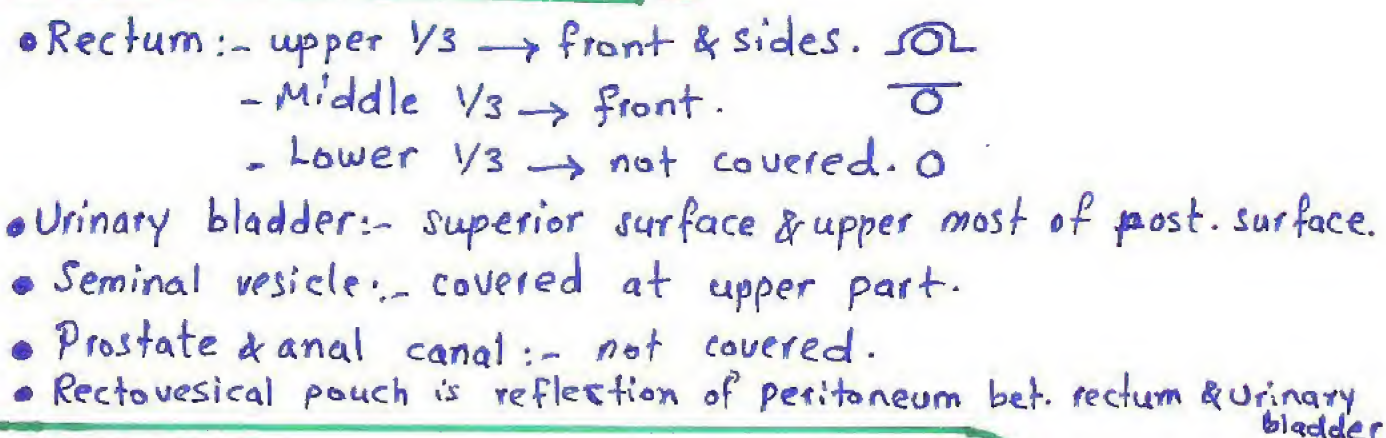 • Rectum:- upper 1/3 → front & sides.
- Middle 1/3 → front.
- Lower 1/3 → not covered.
• Urinary bladder:- superior surface & upper most of post. surface.
• Seminal vesicle:- covered at upper part.
• Prostate & anal canal:- not covered.
• Rectovesical pouch is reflection of peritoneum bet. rectum & urinary
bladder